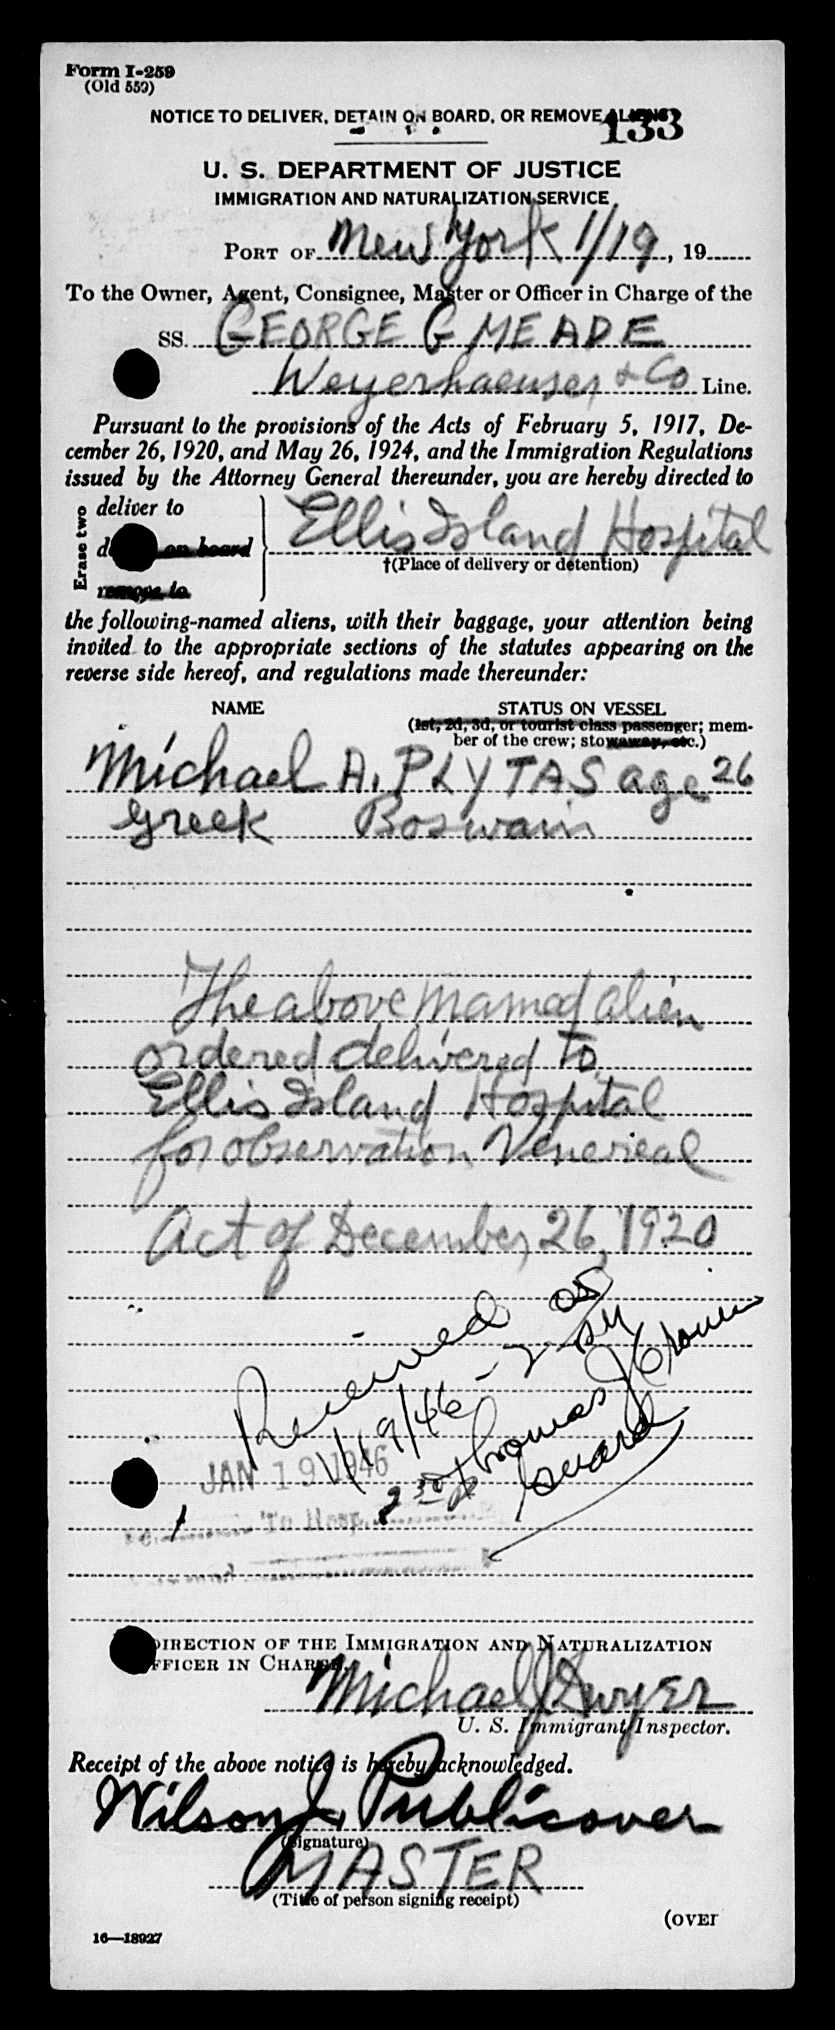 Form I-259
(Old 559)
NOTICE TO DELIVER, DETAIN ON BOARD, OR REMOVE ALIENS
133
U. S. DEPARTMENT OF JUSTICE
IMMIGRATION AND NATURALIZATION SERVICE
PORT OF New York 1/19, 19
To the Owner, Agent, Consignee, Master or Officer in Charge of the
SS. GEORGE G MEADE
Weyerhaeuser & Co Line.
Pursuant to the provisions of the Acts of February 5, 1917, De-
cember 26, 1920, and May 26, 1924, and the Immigration Regulations
issued by the Attorney General thereunder, you are hereby directed to
Erase two
deliver to
on board
remove to
Ellis Island Hospital
†(Place of delivery or detention)
the following-named aliens, with their baggage, your attention being
invited to the appropriate sections of the statutes appearing on the
reverse side hereof, and regulations made thereunder:
NAME STATUS ON VESSEL
(1st, 2d, 3d, or tourist class passenger; mem-
ber of the crew; stowaway, etc.)
Michael A. PLYTAS age 26
Greek Boswain
The above named alien
ordered delivered to
Ellis Island Hospital
for observation Venereal
Act of December 26, 1920
Received
1/19/46
Thomas J Cronin
Guard
JAN 19 1946
To Hosp.
DIRECTION OF THE IMMIGRATION AND NATURALIZATION
OFFICER IN CHARGE.
Michael J Dwyer
U. S. Immigrant Inspector.
Receipt of the above notice is hereby acknowledged.
Wilson J. Publicover
(Signature)
MASTER
(Title of person signing receipt)
(OVER
16—18927